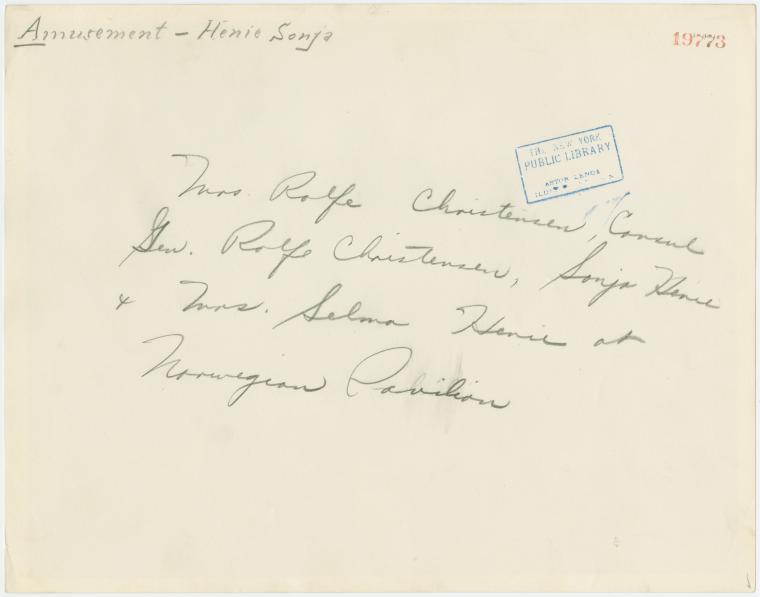 Amusement - Henie Sonja
19773
THE NEW YORK
PUBLIC LIBRARY
ASTOR LENOX
Mrs. Rolfe Christensen, Consul
Gen. Rolfe Christensen, Sonja Henie
& Mrs. Selma Henie at
Norwegian Pavilion